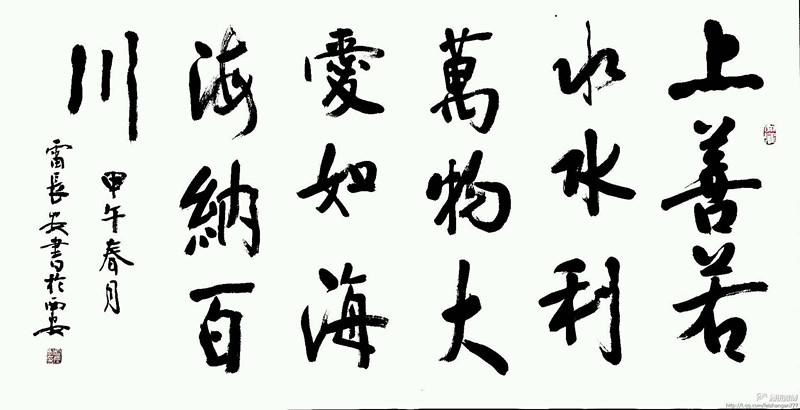 上善若
水水利
萬物大
愛如海
海納百
川
甲午春月
雷長安書於西安
http://t.qq.com/leizhangan777